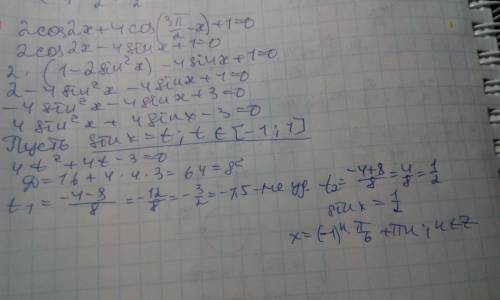 2cos2x+4cos(3π/2-x)+1=0
2cos2x-4sinx+1=0
2·(1-2sin²x)-4sinx+1=0
2-4sin²x-4sinx+1=0
-4sin²x-4sinx+3=0
4sin²x+4sinx-3=0
Пусть sinx=t; t∈[-1;1]
4t²+4t-3=0
D=16+4·4·3=64=8²
t₁=(-4-8)/8=-12/8=-3/2=-1,5-не уд. t₂=(-4+8)/8=4/8=1/2
sinx=1/2
x=(-1)ⁿ·π/6+πn; n∈Z